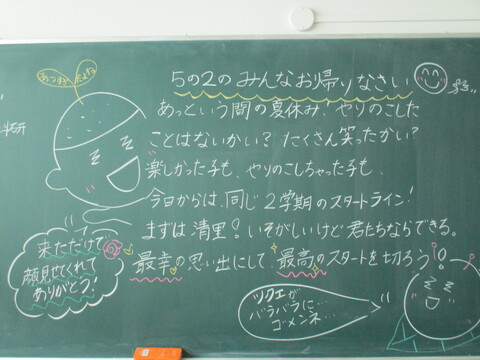 5の2のみんなお帰りなさい
あっという間の夏休み、やりのこした
ことはないかい？たくさん笑ったかい？
楽しかった子も、やりのこしちゃった子も、
今日からは、同じ2学期のスタートライン！
まずは清里！いそがしいけど君たちならできる。
最幸の思い出にして、最高のスタートを切ろう！
来ただけで
顔見せてくれて
ありがとう！
ツクエが
バラバラに…
ゴメンネ…